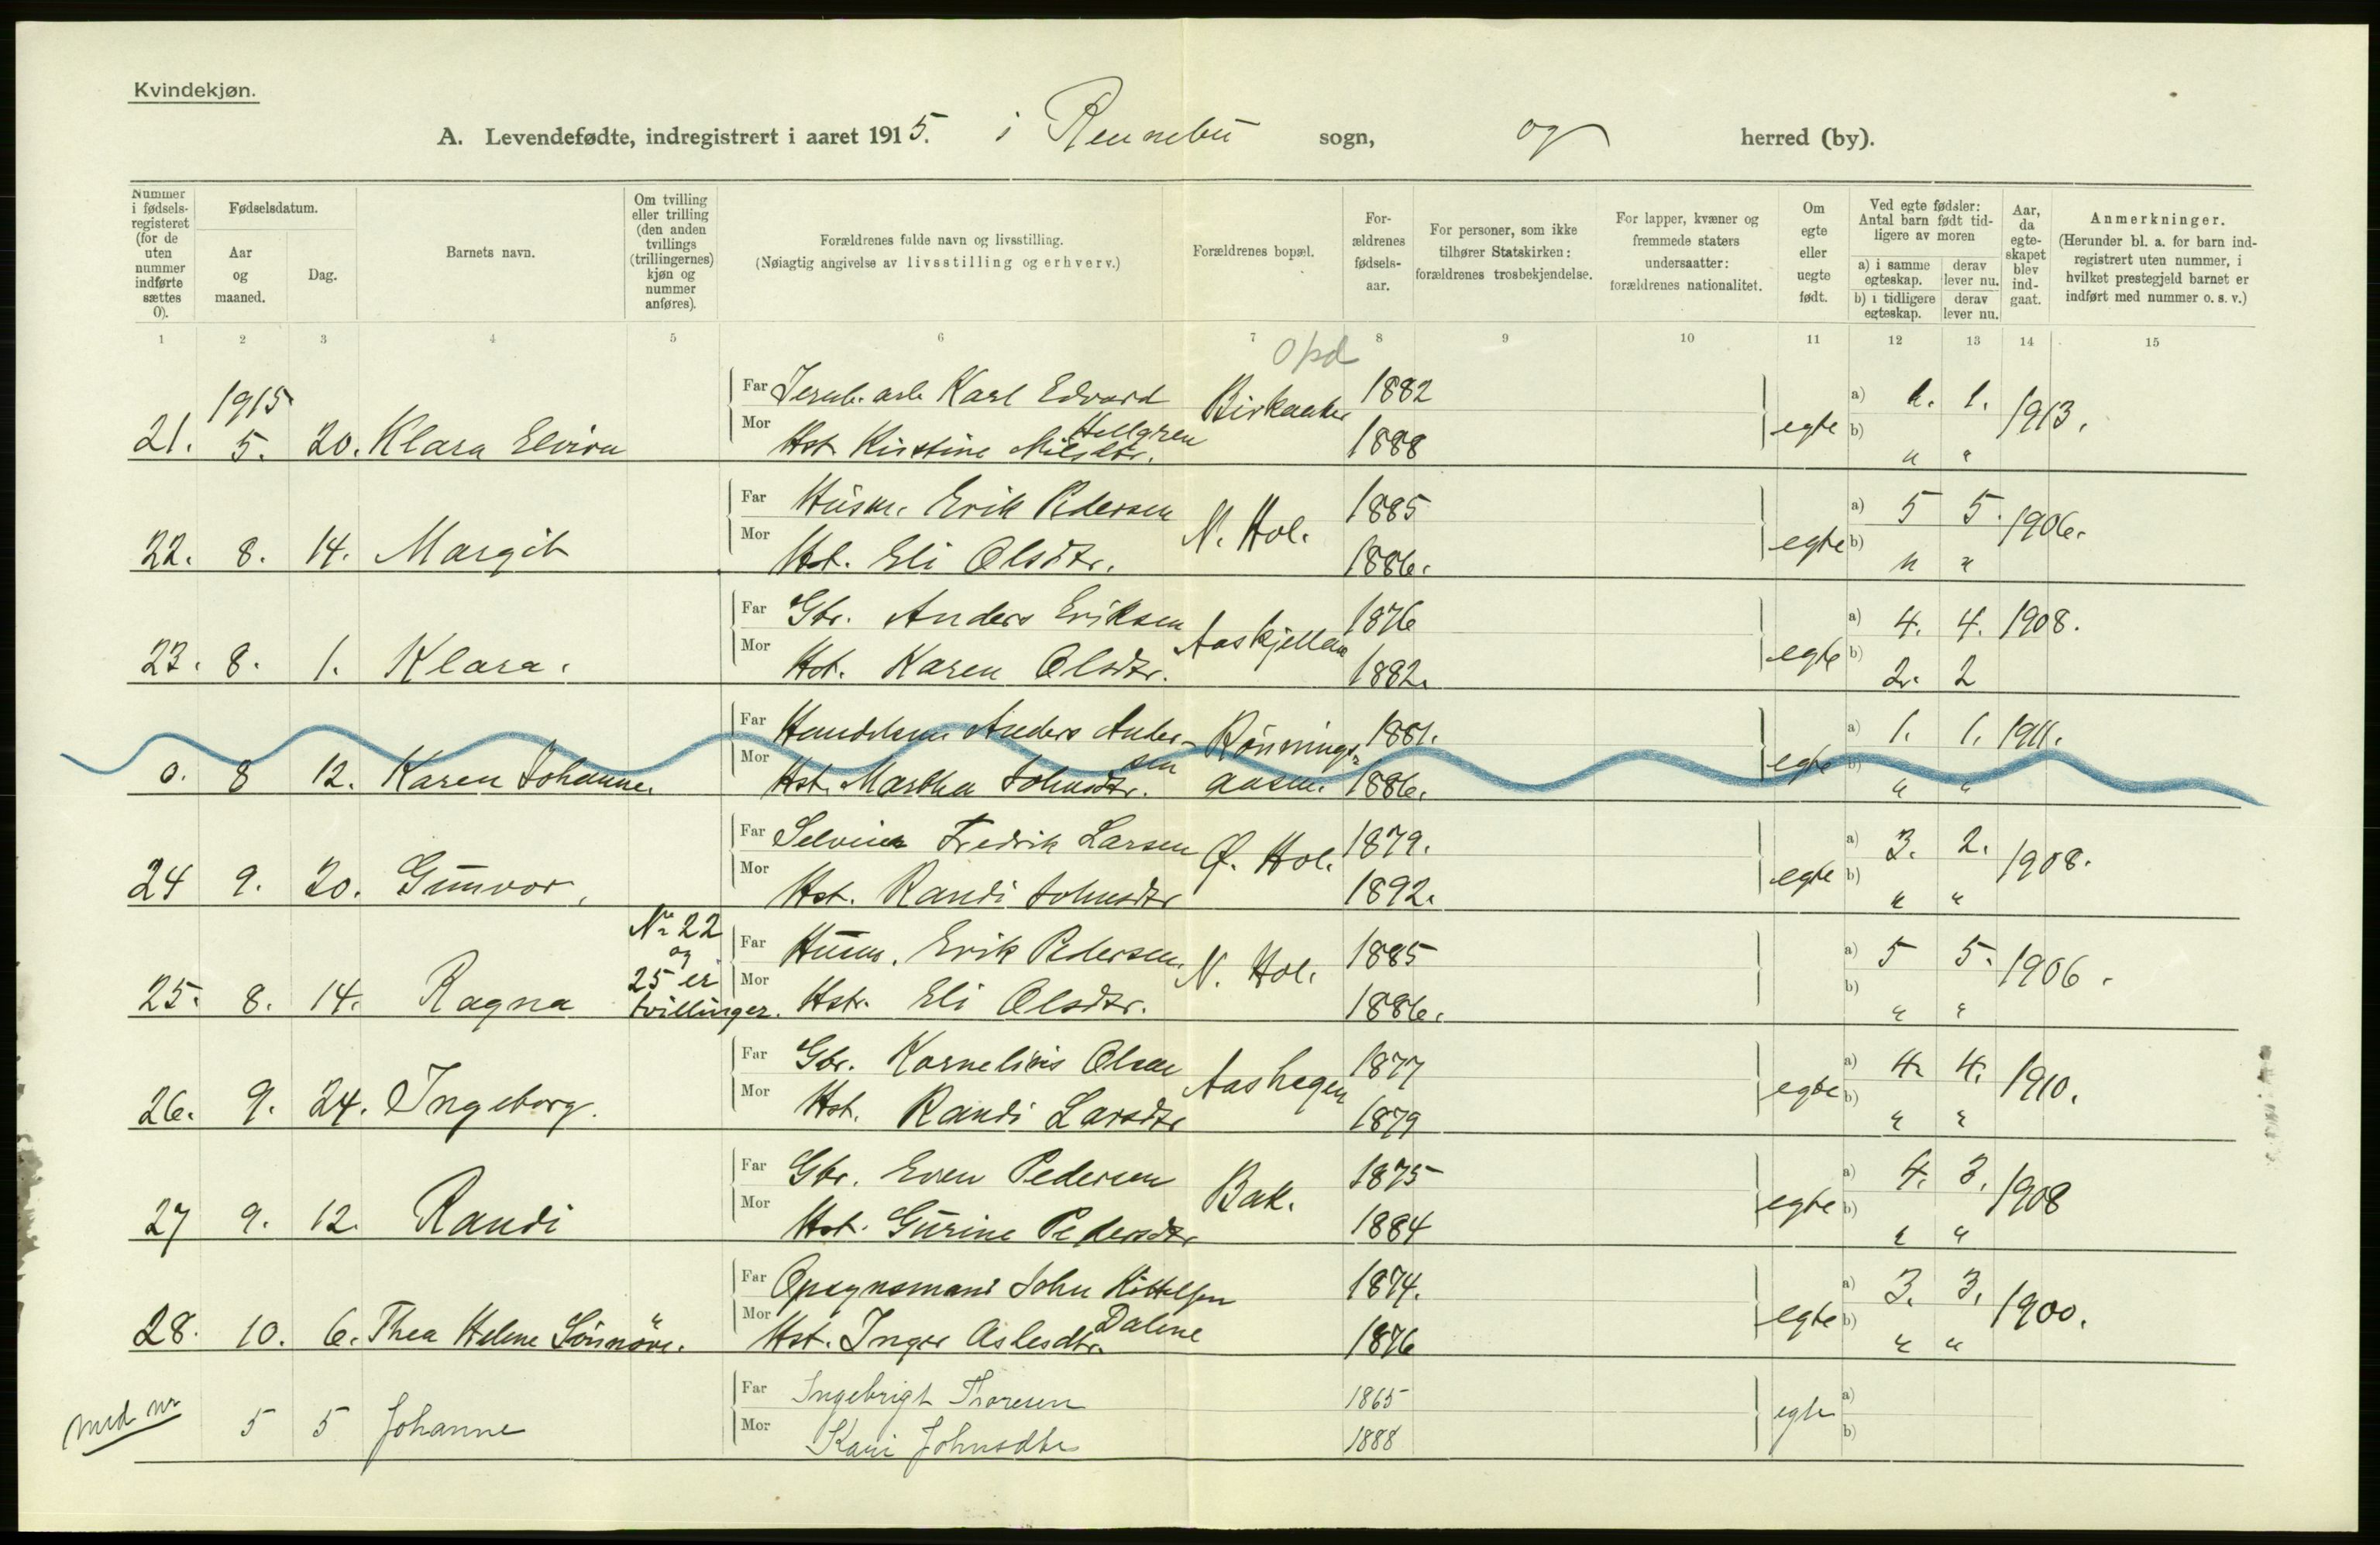 Kvindekjøn.
A. Levendefødte, indregistrert i aaret 1915. i Rennebu sogn, og herred (by).
Nummer i fødselsregisteret (for de uten nummer indførte sættes 0).
Fødselsdatum.
Aar og maaned.
Dag.
Barnets navn.
Om tvilling eller trilling (den anden tvillings (trillingernes) kjøn og nummer anføres).
Forældrenes fulde navn og livsstilling.
(Nøiagtig angivelse av livsstilling og erhverv.)
Forældrenes bopæl.
Forældrenes fødselsaar.
For personer, som ikke tilhører Statskirken: forældrenes trosbekjendelse.
For lapper, kvæner og fremmede staters undersaatter: forældrenes nationalitet.
Om egte eller uegte født.
Ved egte fødsler: Antal barn født tidligere av moren
a) i samme egteskap. derav lever nu.
b) i tidligere egteskap. derav lever nu.
Aar, da egteskapet blev indgaat.
Anmerkninger.
(Herunder bl. a. for barn indregistrert uten nummer, i hvilket prestegjeld barnet er indført med nummer o. s. v.)
1 2 3 4 5 6 7 8 9 10 11 12 13 14 15
Opd
1915
Far Jernb. arb. Karl Edvard Hellgren Birkaaker 1882 a) 1. 1. 1913.
21. 5. 20. Klara Elvira Mor Hst. Kirstine Nilsdtr. 1888 egte b) " "
Far Husm. Erik Pedersen N. Hol. 1885 a) 5 5. 1906.
22. 8. 14. Margit Mor Hst. Eli Olsdtr. 1886. egte b) " "
Far Gbr. Anders Eriksen Aaskjellan 1876 a) 4. 4. 1908.
23. 8. 1. Klara. Mor Hst. Karen Olsdtr. 1882. egte b) 2. 2
Far Handelsm. Anders Andersen Rönnings- 1881. a) 1. 1. 1911.
0. 8 12. Karen Johanne. Mor Hst. Martha Johnsdtr. aasen. 1886. egte b) " "
Far Selveier Fredrik Larsen Ø. Hol. 1879. a) 3. 2. 1908.
24 9. 20. Gunvor, Mor Hst. Randi Johnsdtr 1892. egte b) " "
Nr 22 og 25 er tvillinger.
Far Husm. Erik Pedersen. N. Hol. 1885 a) 5 5. 1906.
25. 8. 14. Ragna Mor Hstr. Eli Olsdtr. 1886. b) " "
Far Gbr. Kornelius Olsen Aashagen 1877 a) 4. 4. 1910.
26. 9. 24. Ingeborg. Mor Hst. Randi Larsdtr 1879 egte b) " "
Far Gbr. Even Pedersen Bak. 1875 a) 4. 3. 1908
27 9. 12. Randi Mor Hst. Gurine Pedersdtr 1884 egte b) " "
Far Opsynsmand John Kittelsen Dalene 1874. a) 3. 3. 1900.
28. 10. 6. Thea Helene Sönnöve. Mor Hst. Inger Aslesdtr. 1876 egte b) " "
Far Ingebrigt Thoresen 1865 a)
med nr 5 5 Johanne Mor Kari Johnsdtr 1888 egte b)